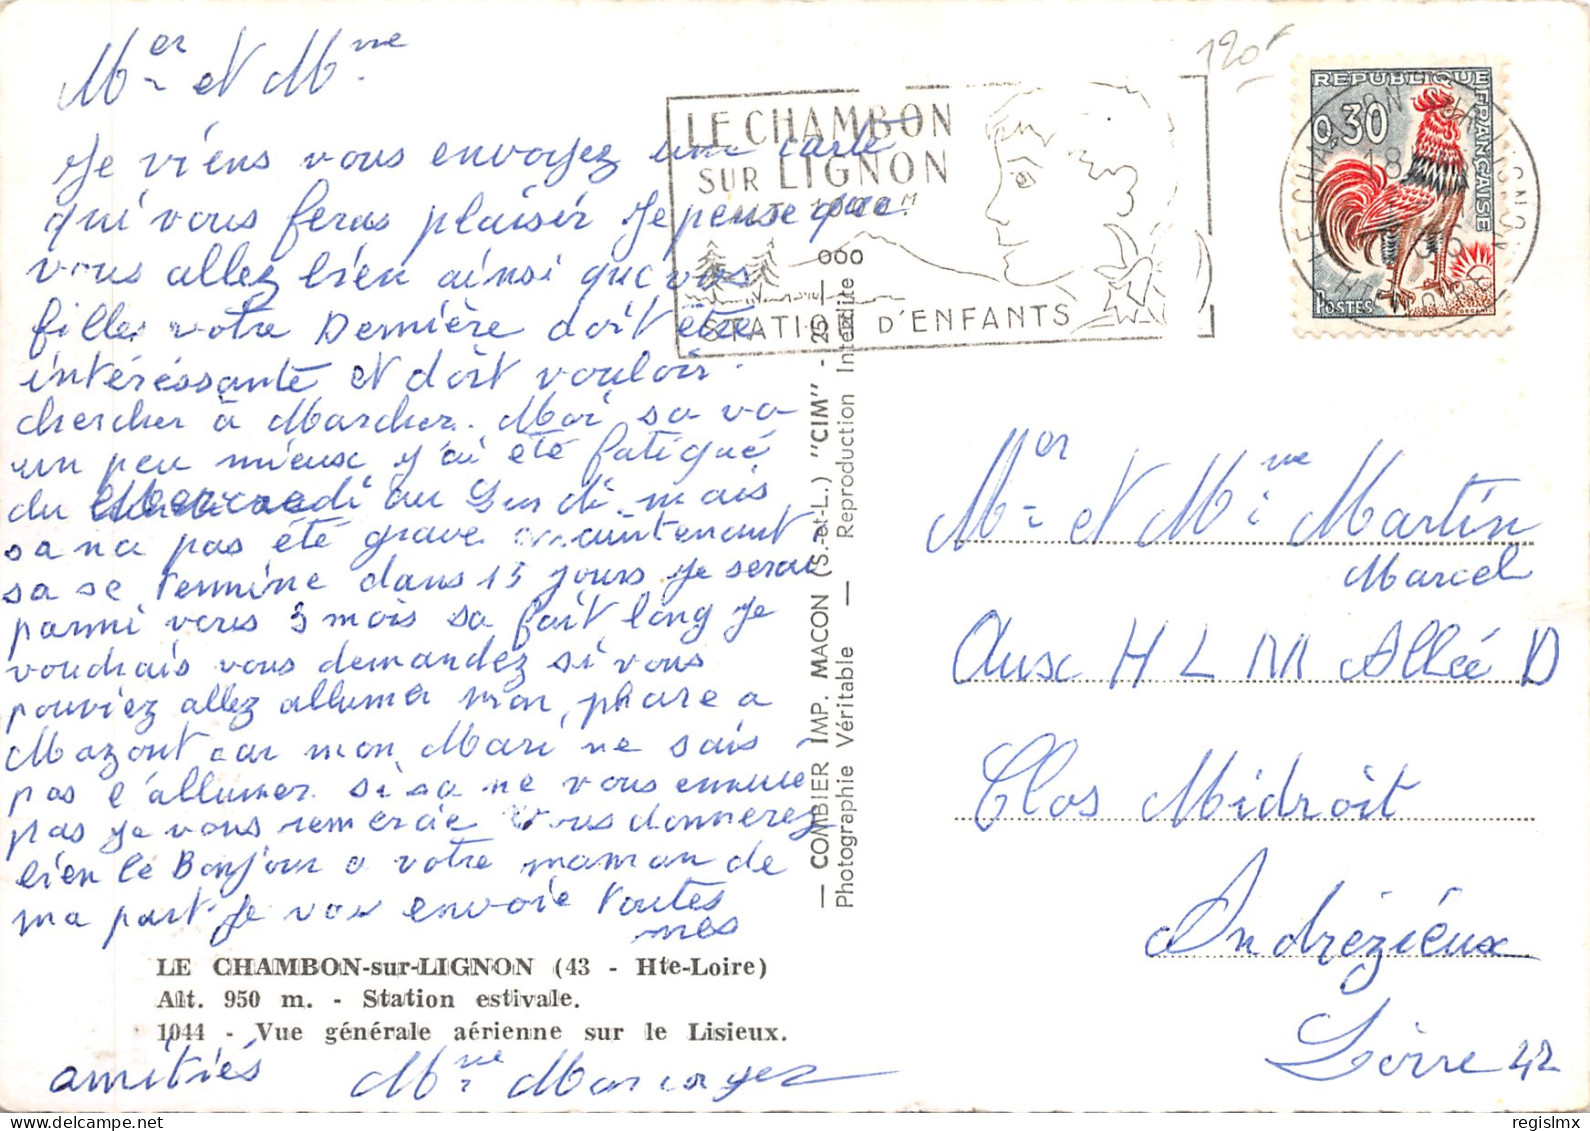 Mer et Mme
Je viens vous envoyez une carte
qui vous feras plaisir Je pense que
vous allez bien ainsi que vos
filles votre Dernière doit être
intéréssante et doit vouloir
chercher à Marcher. Moi sa va
un peu mieux j'ai été fatigué
du Mercredi au Lundi mais
sa na pas été grave maintenant
sa se termine dans 15 jours Je serai
parmi vous 3 mois sa fait long Je
voudrais vous demandez si vous
pouviez allez allumer mon phare a
Mazont car mon Mari ne sais
pas l'allumer si sa ne vous ennuie
pas Je vous remercie Vous donnerez
bien le Bonjour a votre maman de
ma part Je vous envoie toutes
mes
LE CHAMBON-sur-LIGNON (43 - Hte-Loire)
Alt. 950 m. - Station estivale.
1044 - Vue générale aérienne sur le Lisieux.
amitiés Mme
— COMBIER IMP. MACON (S.-et-L.) "CIM" - 25 —
Photographie Véritable — Reproduction Interdite
120f
LE CHAMBON
SUR LIGNON
ALT. 1000 M
STATION D'ENFANTS
REPUBLIQUE FRANÇAISE
0,30
POSTES
LE CHAMBON-SUR-LIGNON
18
Mer et Mme Martin
Marcel
Aux H L M Allée D
Clos Midroit
Andrézieux
Loire 42
regislmx